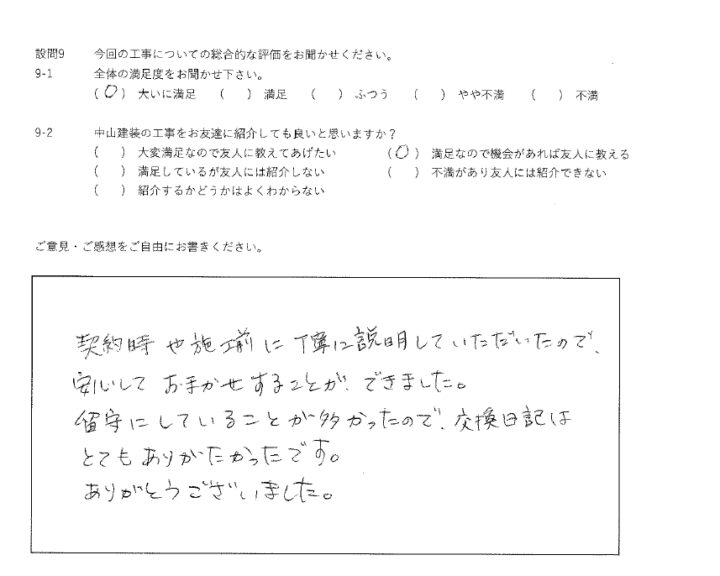 設問9 今回の工事についての総合的な評価をお聞かせください。
9-1 全体の満足度をお聞かせ下さい。
(○) 大いに満足 ( ) 満足 ( ) ふつう ( ) やや不満 ( ) 不満
9-2 中山建装の工事をお友達に紹介しても良いと思いますか?
( ) 大変満足なので友人に教えてあげたい (○) 満足なので機会があれば友人に教える
( ) 満足しているが友人には紹介しない ( ) 不満があり友人には紹介できない
( ) 紹介するかどうかはよくわからない
ご意見・ご感想をご自由にお書きください。
契約時や施工前に丁寧に説明していただいたので、
安心しておまかせすることができました。
留守にしていることが多かったので、交換日記は
とてもありがたかったです。
ありがとうございました。